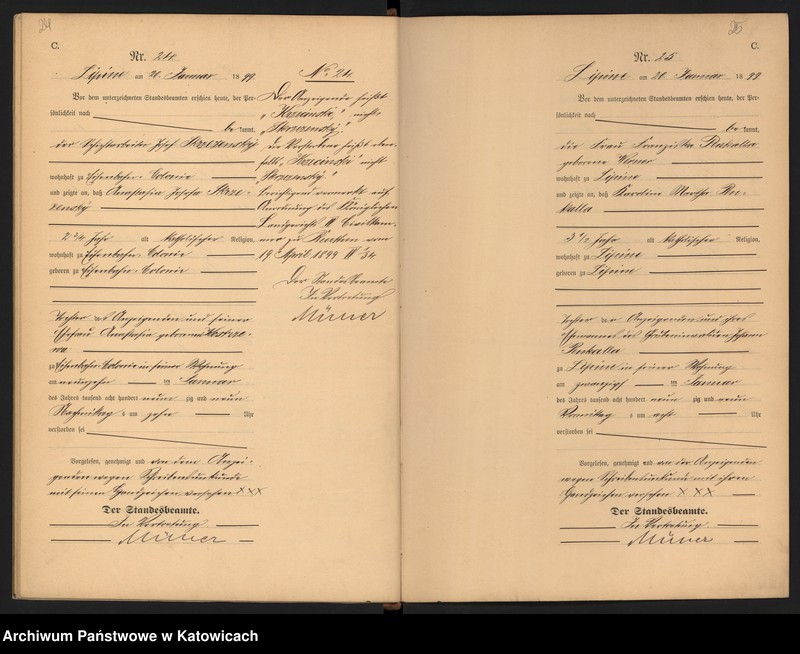 24
C.
Nr. 24.
Lipine am 20. Januar 1899
Vor dem unterzeichneten Standesbeamten erschien heute, der Per-
sönlichkeit nach
be kannt,
der Schichtarbeiter Josef
wohnhaft zu Eisenbahn-Colonie
und zeigte an, daß Anastasia Josefa
2 3/4 Jahr alt katholischer Religion,
wohnhaft zu Eisenbahn-Colonie
geboren zu Eisenbahn-Colonie
Tochter des Anzeigenden und seiner
Ehefrau Anastasia geborene
zu Eisenbahn-Colonie in seiner Wohnung
am neunzehn ten Januar
des Jahres tausend acht hundert neun zig und neun
Nachmittag s um zehn Uhr
verstorben sei
Vorgelesen, genehmigt und von dem Anzei-
genden wegen Schreibensunkunde
mit seinen Handzeichen versehen XXX
Der Standesbeamte.
In Vertretung
No. 24.
Der Anzeigende heißt
nicht
die Verstorbene heißt eben-
falls nicht
Anordnung des Königlichen
Landgerichts II Civilkam-
mer zu Beuthen vom
19 April 1899
Der Standesbeamte
In Vertretung
25
C.
Nr. 25
Lipine am 20. Januar 1899
Vor dem unterzeichneten Standesbeamten erschien heute, der Per-
sönlichkeit nach
be kannt,
die Frau Franziska Rukalla
geborene
wohnhaft zu Lipine
und zeigte an, daß Karoline Martha Ru-
kalla
3 1/2 Jahr alt katholischer Religion,
wohnhaft zu Lipine
geboren zu Lipine
Tochter der Anzeigenden und ihres
Ehemannes des Grubeninvaliden Johann
Rukalla
zu Lipine in seiner Wohnung
am zwanzigs ten Januar
des Jahres tausend acht hundert neun zig und neun
Vormittag s um acht Uhr
verstorben sei
Vorgelesen, genehmigt und von der Anzeigenden
wegen Schreibensunkunde mit ihren
Handzeichen versehen XXX
Der Standesbeamte.
In Vertretung
Archiwum Państwowe w Katowicach